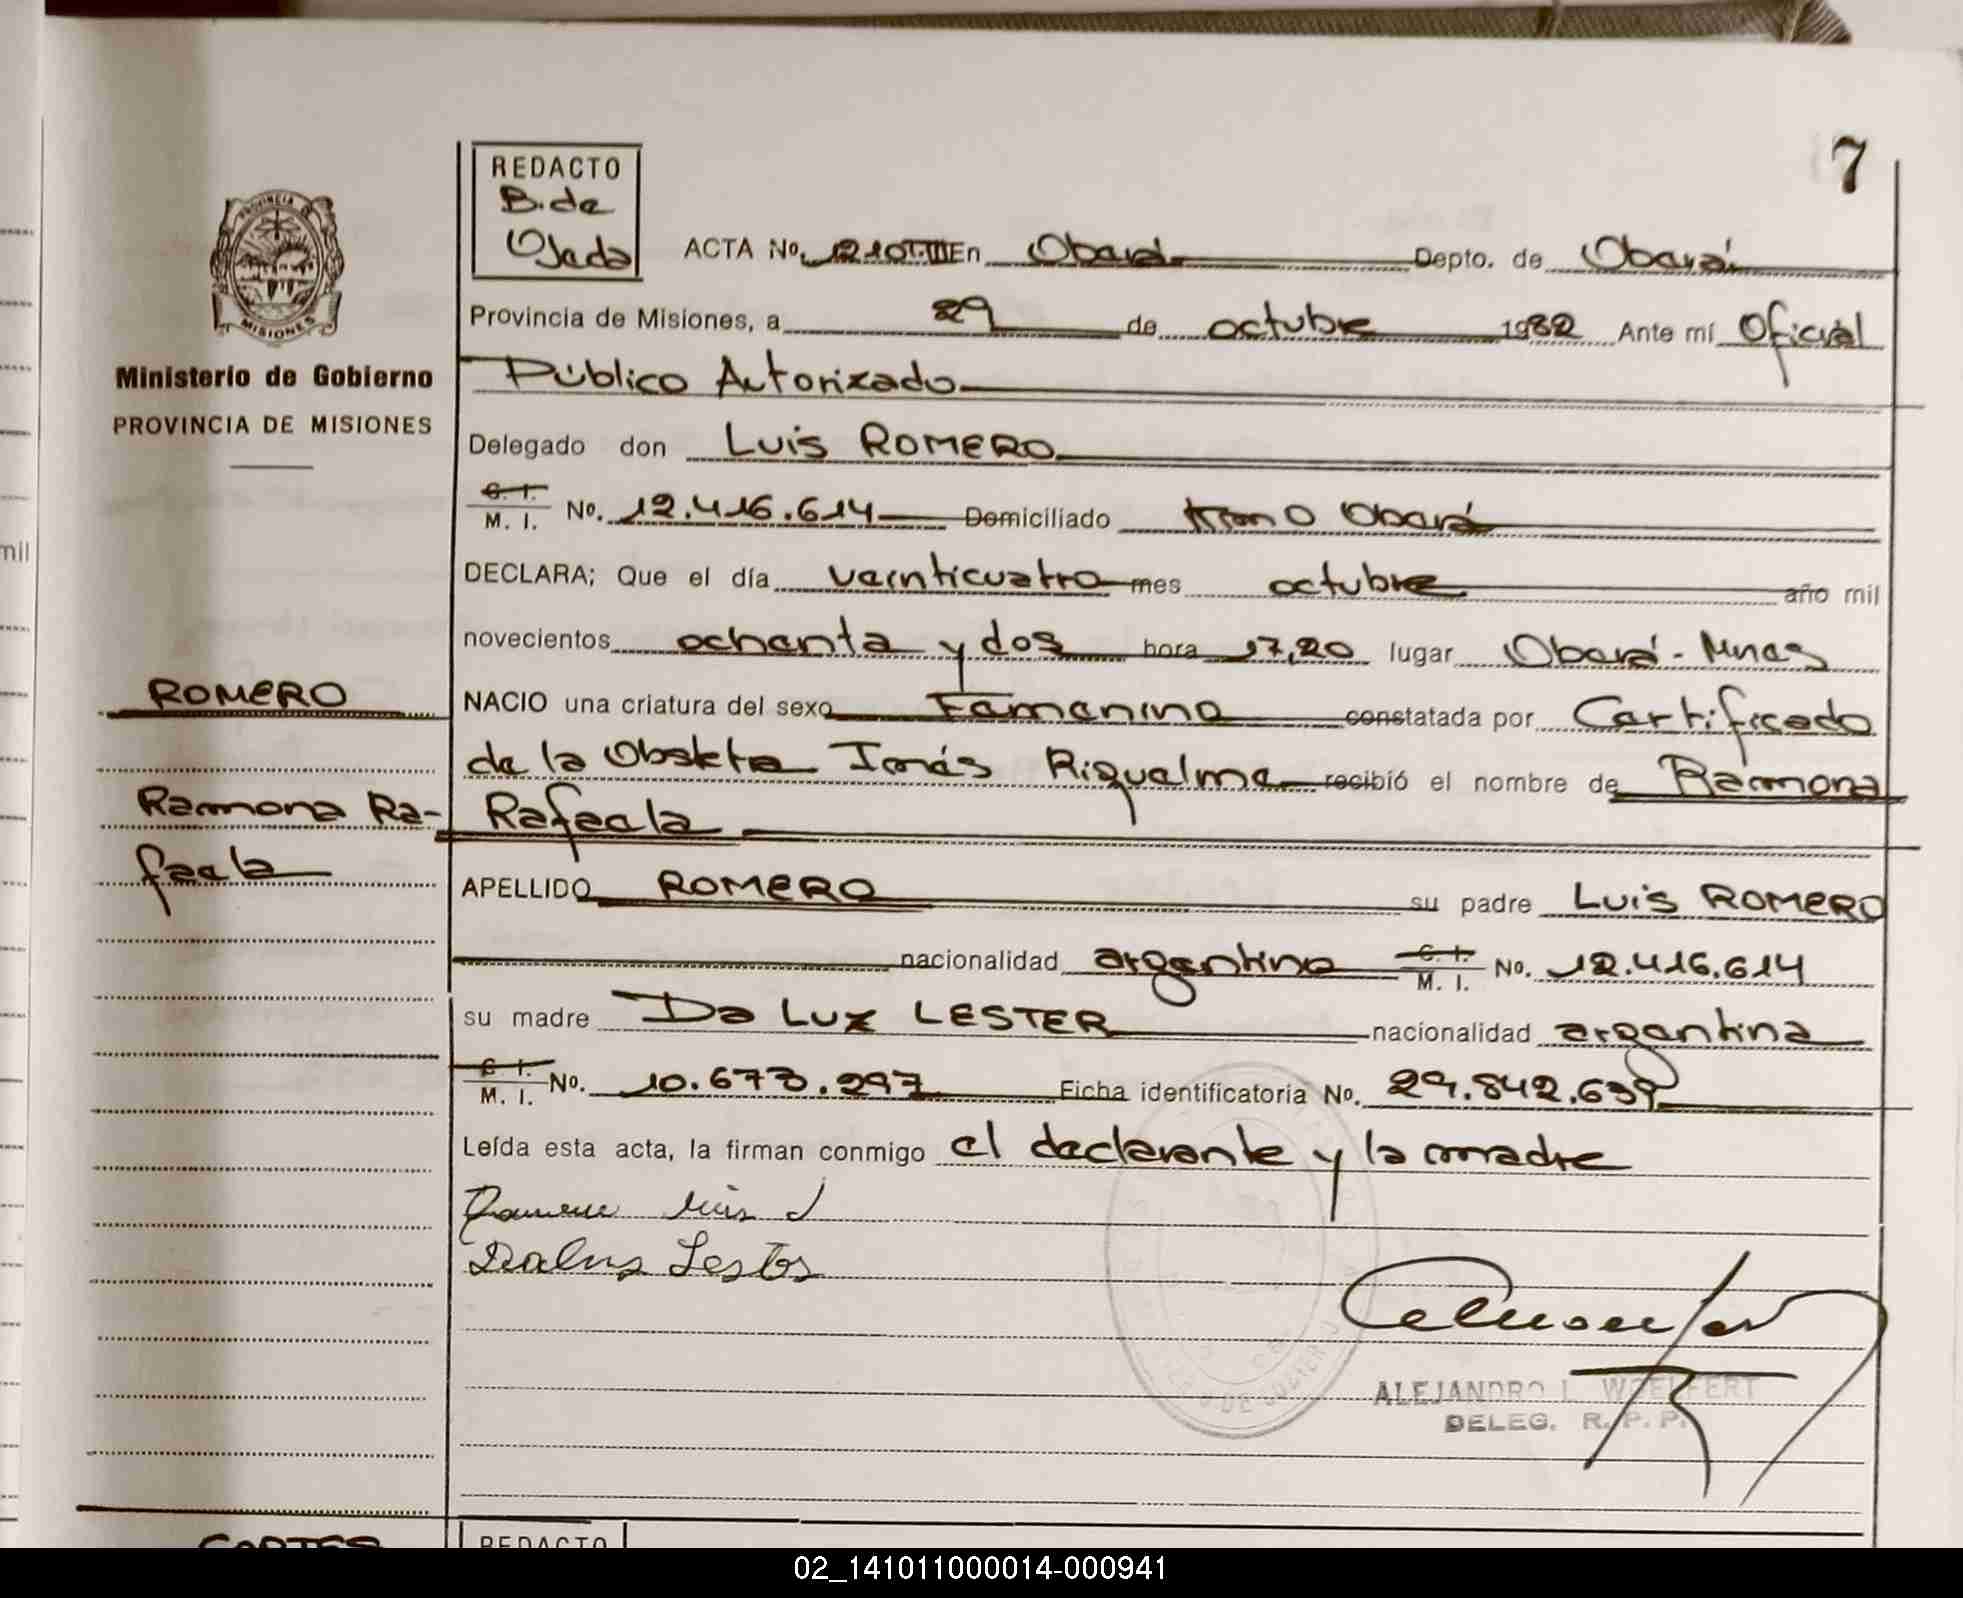 7
REDACTO
B. de
Ojeda
PROVINCIA
MISIONES
Ministerio de Gobierno
PROVINCIA DE MISIONES
ACTA No. 1210T.III En Oberá Depto. de Oberá
Provincia de Misiones, a 29 de octubre 1982 Ante mí Oficial
Público Autorizado
Delegado don Luis ROMERO
C. I.
M. I. No. 12.416.614 Domiciliado Km 0 Oberá
DECLARA; Que el día veinticuatro mes octubre año mil
novecientos ochenta y dos hora 17,20 lugar Oberá - Mnes
ROMERO
NACIO una criatura del sexo Femenino constatada por Certificado
de la Obstetra Inés Riquelme recibió el nombre de Ramona
Ramona Ra-
Rafaela
faela
APELLIDO ROMERO su padre Luis ROMERO
nacionalidad argentino C. I.
M. I. No. 12.416.614
su madre Da Luz LESTER nacionalidad argentina
C. I.
M. I. No. 10.673.297 Ficha identificatoria No. 29.842.639
Leída esta acta, la firman conmigo el declarante y la madre
Luis
ALEJANDRO L. WOELFERT
DELEG. R. P. P.
mil
REDACTO
02_141011000014-000941